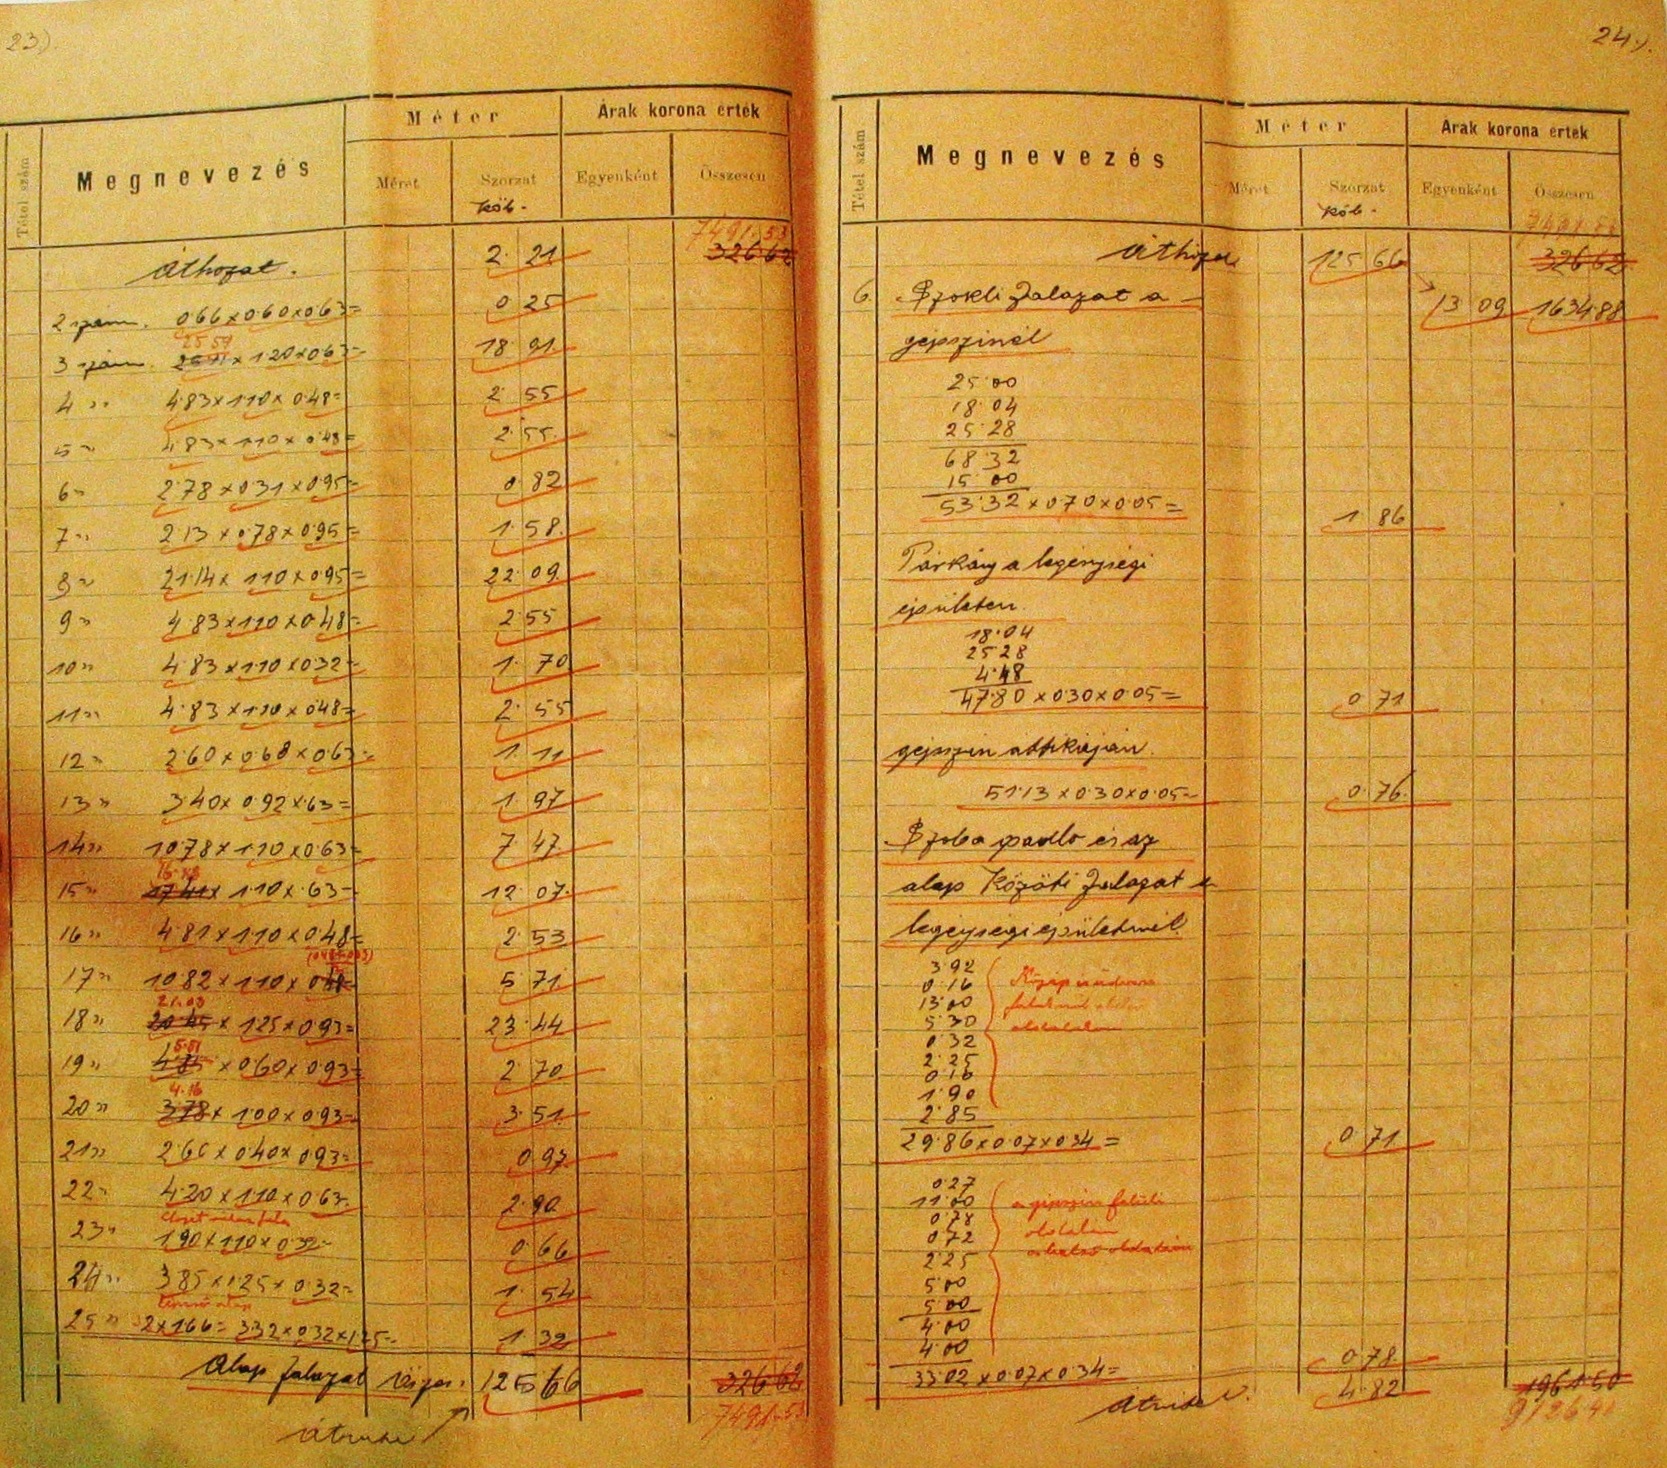 23).
Tétel szám
Megnevezés
Méter
Méret
Szorzat
köb.
Árak korona érték
Egyenként
Összesen
7491.53
Áthozat.
2.21
326 62
2 szám. 0.66 x 0.60 x 0.63=
0 25
25 51
3 szám. x 1.20 x 0.63=
18 91
4 " 4.83 x 1.10 x 0.48=
2. 55
5 " 4.83 x 1.10 x 0.48=
2. 55
6 " 2.78 x 0.31 x 0.95=
0 82
7 " 2.13 x 0.78 x 0.95=
1. 58.
8 " 21.14 x 1.10 x 0.95=
22. 09
9 " 4.83 x 1.10 x 0.48=
2. 55
10 " 4.83 x 1.10 x 0.32=
1. 70
11 " 4.83 x 1.10 x 0.48=
2. 55
12 " 2.60 x 0.68 x 0.63=
1. 11
13 " 3.40 x 0.92 x .63=
1. 97
14 " 10.78 x 1.10 x 0.63=
7 47.
15 " 17.41 x 1.10 x .63=
12 07.
16 " 4.81 x 1.10 x 0.48=
2. 53
17 " 10.82 x 1.10 x
5 71.
21.03
18 " 20.45 x 1.25 x 0.93=
23. 44
5.01
19 " 4.85 x 0.60 x 0.93=
2. 70
4.16
20 " 3.78 x 1.00 x 0.93=
3. 51.
21 " 2.66 x 0.40 x 0.93=
0 97
22 " 4.20 x 1.10 x 0.63=
2. 90
23 " 1.90 x 1.10 x 0.32=
0. 66
24 " 3.85 x 1.25 x 0.32=
1. 54
25 " 2 x 1.66= 3.32 x 0.32 x 1.25=
1. 32
Alap falazat
125 66
326 62
7491.53
24.).
Tétel szám
Megnevezés
Méter
Méret
Szorzat
köb.
Árak korona érték
Egyenként
Összesen
7491.53
125 66
326 62
6. Szokli falazat a
13 09
1634.88
gépszinél
25.00
18.04
25.28
68.32
15.00
53.32 x 0.70 x 0.05=
1. 86
Párkány a legénységi
épületen.
18.04
25 28
4.48
47.80 x 0.30 x 0.05=
0 71
gépszin attikáján.
51.13 x 0.30 x 0.05=
0. 76.
Szoba padló és az
alap közöti falazat a
legénységi épületnél.
3.92
0.16
13.00
5.30
0.32
2.25
0.16
1.90
2.85
29.86 x 0.07 x 0.34=
0. 71
0.27
11.00
0.78
0.72
2.25
5.00
5.00
4.00
4.00
a gépszin felüli
oldalán
33.02 x 0.07 x 0.34=
0.78
4.82
1961.50
9126.41